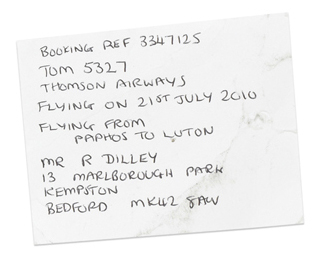 BOOKING REF 3347125
TOM 5327
THOMSON AIRWAYS
FLYING ON 21ST JULY 2010
FLYING FROM
PAPHOS TO LUTON
MR R DILLEY
13 MARLBOROUGH PARK
KEMPSTON
BEDFORD MK42 8AW